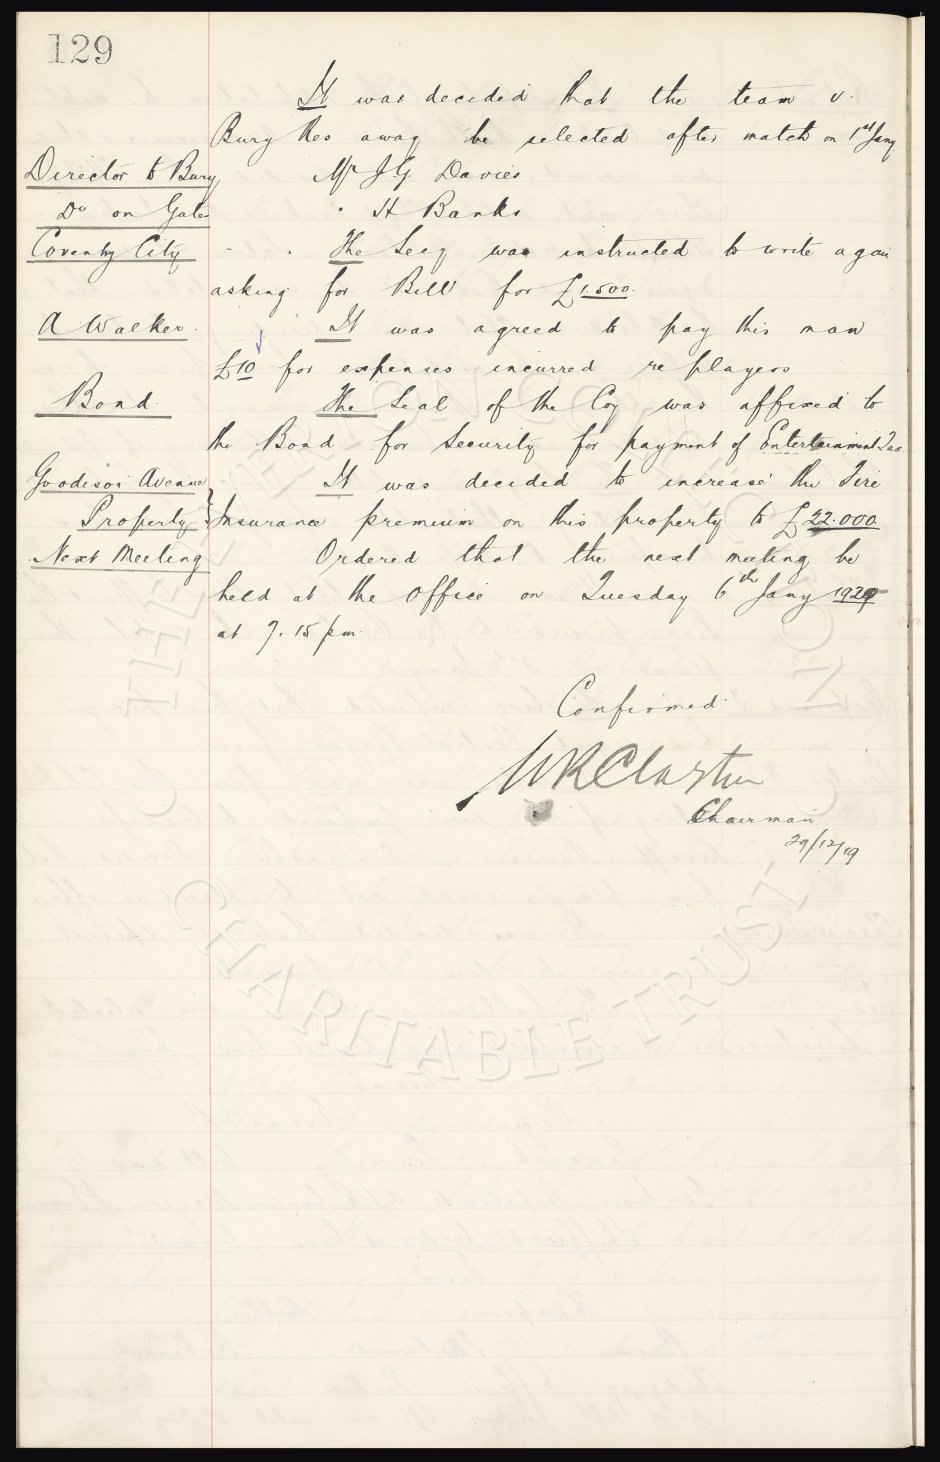 129
It was decided that the team v.
Bury Res away be selected after match on 1st Jany
Director to Bury Mr J.G. Davies
Do on Gates " H Banks
Coventry City - . The Secy was instructed to write again
asking for Bill for £1.500.
A Walker. It was agreed to pay this man
£10 for expenses incurred re players
Bond. The Seal of the Coy was affixed to
the Bond for Security for payment of Entertainment Tax
Goodison Avenue It was decided to increase the Fire
Property } Insurance premium on this property to £22.000
Next Meeting Ordered that the next meeting be
held at the Office on Tuesday 6th Jany 1920
at 7.15 pm.
Confirmed
W R Clayton
Chairman
29/12/19
THE EVERTON COLLECTION
CHARITABLE TRUST